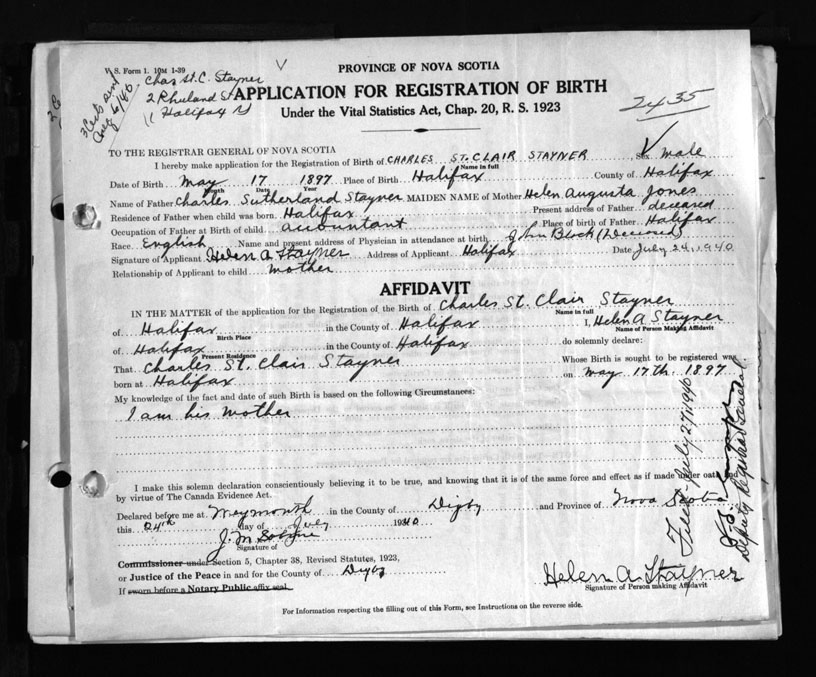 V. S. Form 1. 10M 1-39
Chas St. C. Stayner
2 Rhuland St
Halifax
PROVINCE OF NOVA SCOTIA
APPLICATION FOR REGISTRATION OF BIRTH
Under the Vital Statistics Act, Chap. 20, R. S. 1923
2435
TO THE REGISTRAR GENERAL OF NOVA SCOTIA
I hereby make application for the Registration of Birth of CHARLES ST. CLAIR STAYNER, Sex male
Name in full
Date of Birth May 17 1897 Place of Birth Halifax County of Halifax
Month Date Year
Name of Father Charles Sutherland Stayner MAIDEN NAME of Mother Helen Augusta Jones
Residence of Father when child was born Halifax Present address of Father deceased
Occupation of Father at Birth of child accountant Place of birth of Father Halifax
Race English Name and present address of Physician in attendance at birth John Black (Deceased)
Signature of Applicant Helen A Stayner Address of Applicant Halifax Date July 24, 1940
Relationship of Applicant to child mother
AFFIDAVIT
IN THE MATTER of the application for the Registration of the Birth of Charles St. Clair Stayner
Name in full
of Halifax in the County of Halifax I, Helen A Stayner
Birth Place Name of Person Making Affidavit
of Halifax in the County of Halifax do solemnly declare:
Present Residence
That Charles St. Clair Stayner Whose Birth is sought to be registered was
born at Halifax on May 17th 1897
My knowledge of the fact and date of such Birth is based on the following Circumstances:
I am his mother
I make this solemn declaration conscientiously believing it to be true, and knowing that it is of the same force and effect as if made under oath and
by virtue of The Canada Evidence Act.
Declared before me at Weymouth in the County of Digby and Province of Nova Scotia
this 24th day of July 1940
J. M.
Signature of
Commissioner under Section 5, Chapter 38, Revised Statutes, 1923,
or Justice of the Peace in and for the County of Digby
If sworn before a Notary Public affix seal
Helen A Stayner
Signature of Person making Affidavit
For Information respecting the filling out of this Form, see Instructions on the reverse side.
Filed July 27 1940
Deputy Registrar General